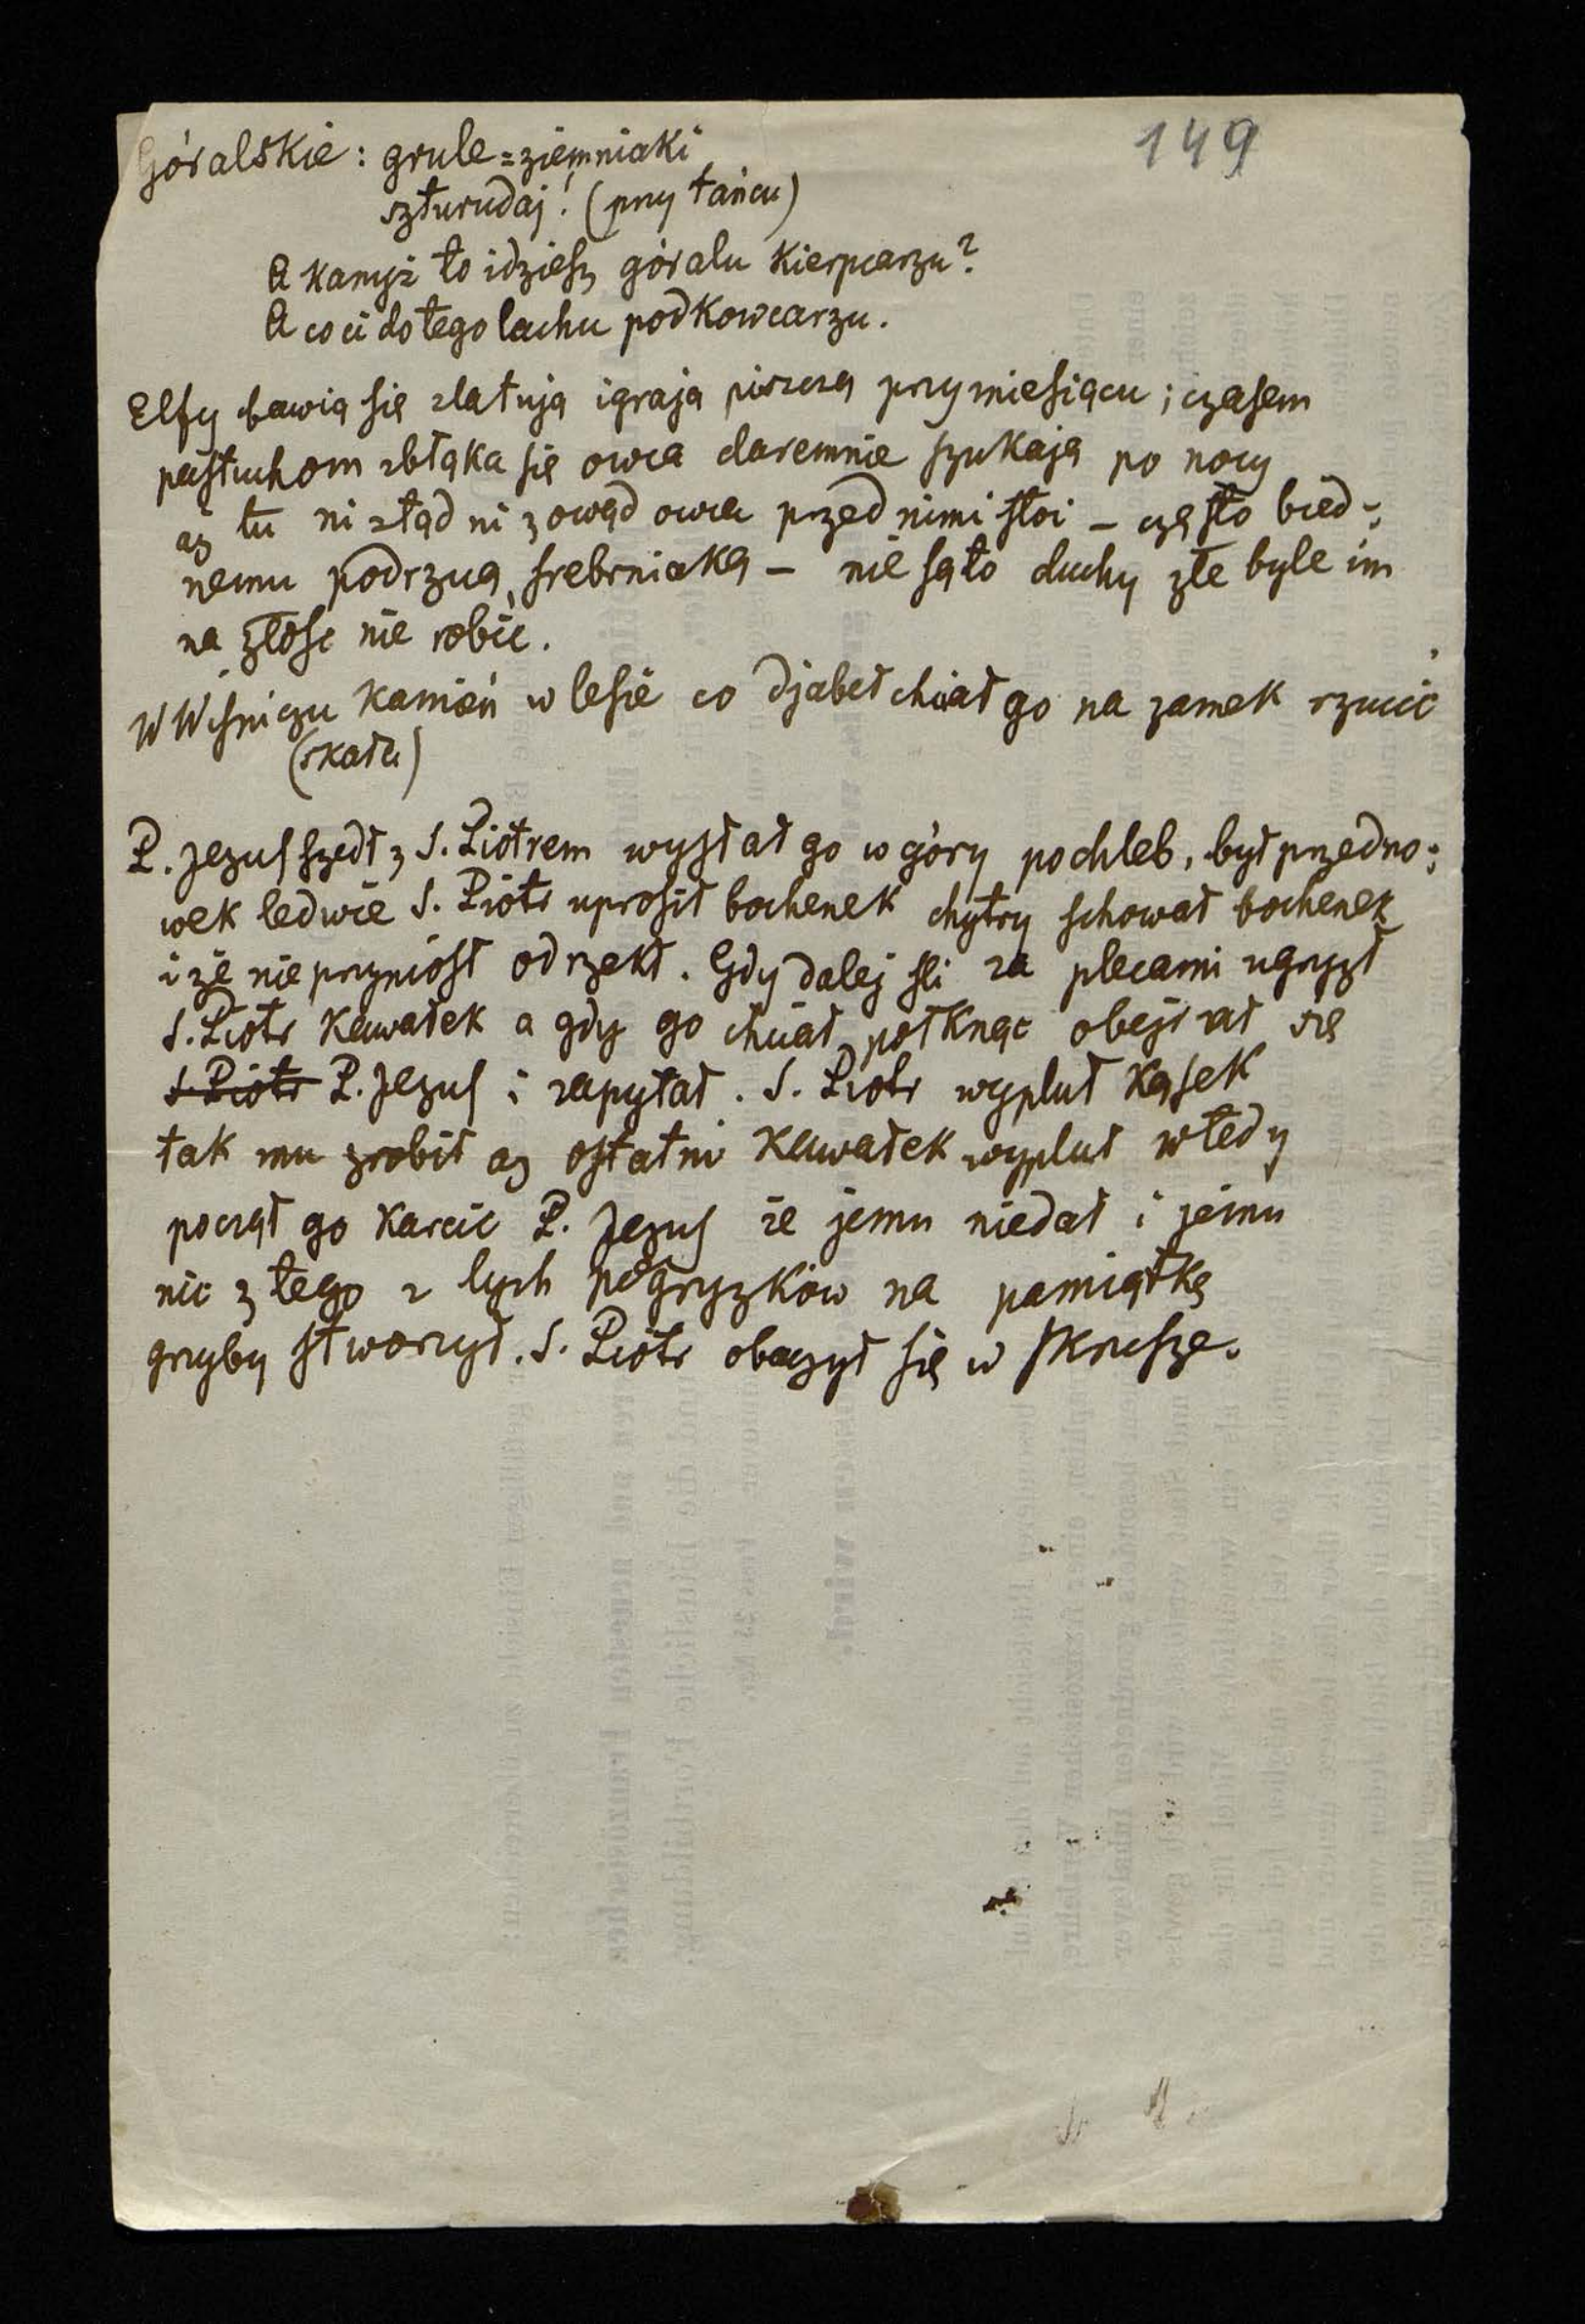 149
Góralskie: grule=ziemniaki
szturudaj! (przy tańcu)
A kanyż to idziesz góralu kierpcarzu?
A co ci do tego lachu podkowcarzu.
Elfy bawią się zlatują igrają piszczą przy miesiącu; czasem
pastuchom zbłąka się owca daremnie szukają po nocy
aż tu ni ztąd ni zowąd owca przed nimi stoi – często bied-
nemu podrzucą srebrniaka – nie są to duchy złe byle im
na złość nie robić.
W Wiśniczu kamień w lesie co djabeł chciał go na zamek rzucić
(skała)
P. Jezus szedł z S. Piotrem wysłał go w góry po chleb, był przedno-
wek ledwie S. Piotr uprosił bochenek chytry schował bochenek
i że nie przyniósł odrzekł. Gdy dalej śli za plecami ugryzł
S. Piotr kawałek a gdy go chciał połknąć obejrzał się
S. Piotr P. Jezus i zapytał. S. Piotr wypluł kąsek
tak mu zrobił aż ostatni kawałek wypluł wtedy
począł go karcić P. Jezus że jemu niedał i jemu
nic z tego z tych pogryzków na pamiątkę
grzyby stworzył. S. Piotr obaczył się w skrusze.